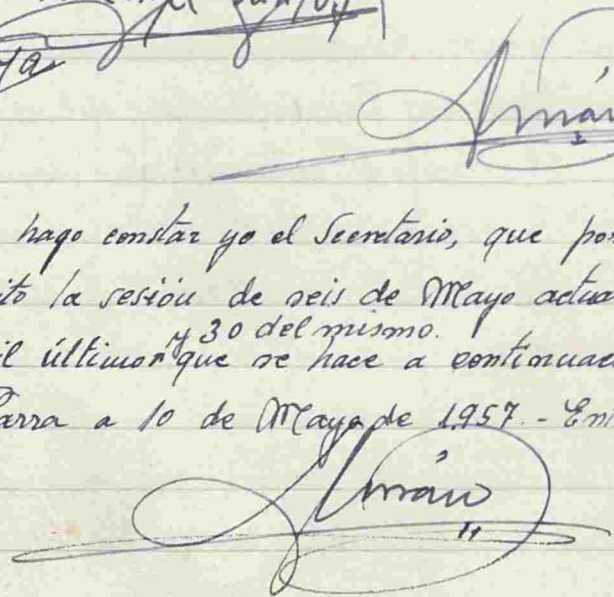 hago constar yo el Secretario, que por
la sesión de seis de Mayo actua
y 30 del mismo.
il último que se hace a continuac
Parra a 10 de Mayo de 1957.- En